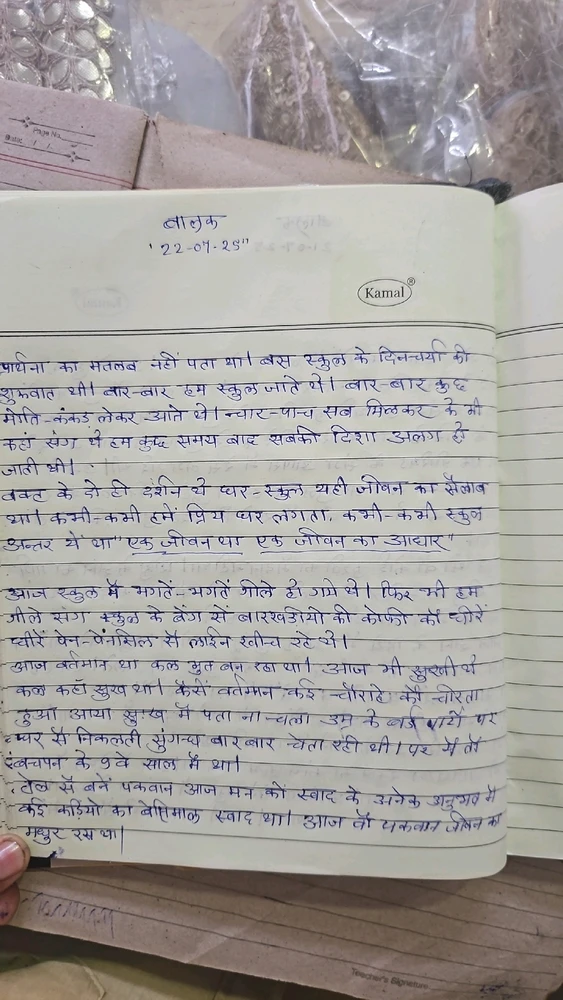 Page No.
Date / /
बालक
"22-07-25"
Kamal
प्रार्थना का मतलब नहीं पता था। बस स्कुल के दिनचर्या की
शुरुवात थी। बार-बार हम स्कुल जाते थे। बार-बार कुछ
मोति-कंकड लेकर आते थे। च्चार-पाच सब मिलकर के भी
कहां संग थे हम कुछ समय बाद सबकी दिशा अलग हो
जाती थी।
वक्त के दो ही दर्शन थे घर-स्कुल यही जीवन का सैलाब
था। कभी-कभी हमें प्रिय घर लगता, कभी-कभी स्कुल
अन्तर ये था "एक जीवन था एक जीवन का आधार"
आज स्कुल में भगतें-भगतें गीले हो गये थे। फिर भी हम
गीले संग स्कुल के बेग सें बारखडीयो की कोफी को धीरें
धीरें पेन-पेंनसिल सें लाईन खीच रहे थे।
आज वर्तमान था कल भुत बन रहा था। आज भी सुखी थे
कल कहाँ सुख था। कैसें वर्तमान कई चौराहें को चीरता
हुआ आया सुःख में पता ना-चला उम्र के कई पायें पर
घर सें निकलती सुंगन्ध बार बार चेता रही थी। पर में तों
बचपन के 9वे साल में था।
तेल सें बनें पकवान आज मन को स्वाद के अनेक अनुभव में
कई कडियो का बेमिसाल स्वाद था। आज वों पकवान जीवन का
मधुर रस था।
Teacher's Signature